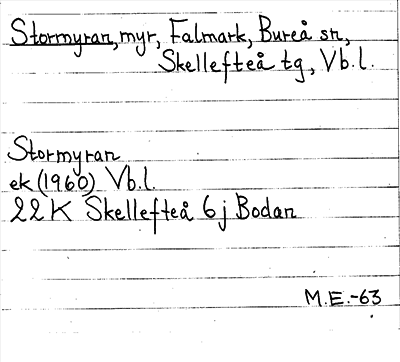 Stormyran, myr, Falmark, Bureå sn,
Skellefteå tg, Vb.l.
Stormyran
ek (1960) Vb.l.
22K Skellefteå 6j Bodan
M.E.-63